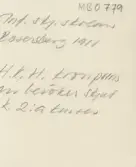 MEO 779
Inf. skj. skolan
Rosersberg 1911
H.K.H. Kronprins
besöker skjut
k 2:a kursen